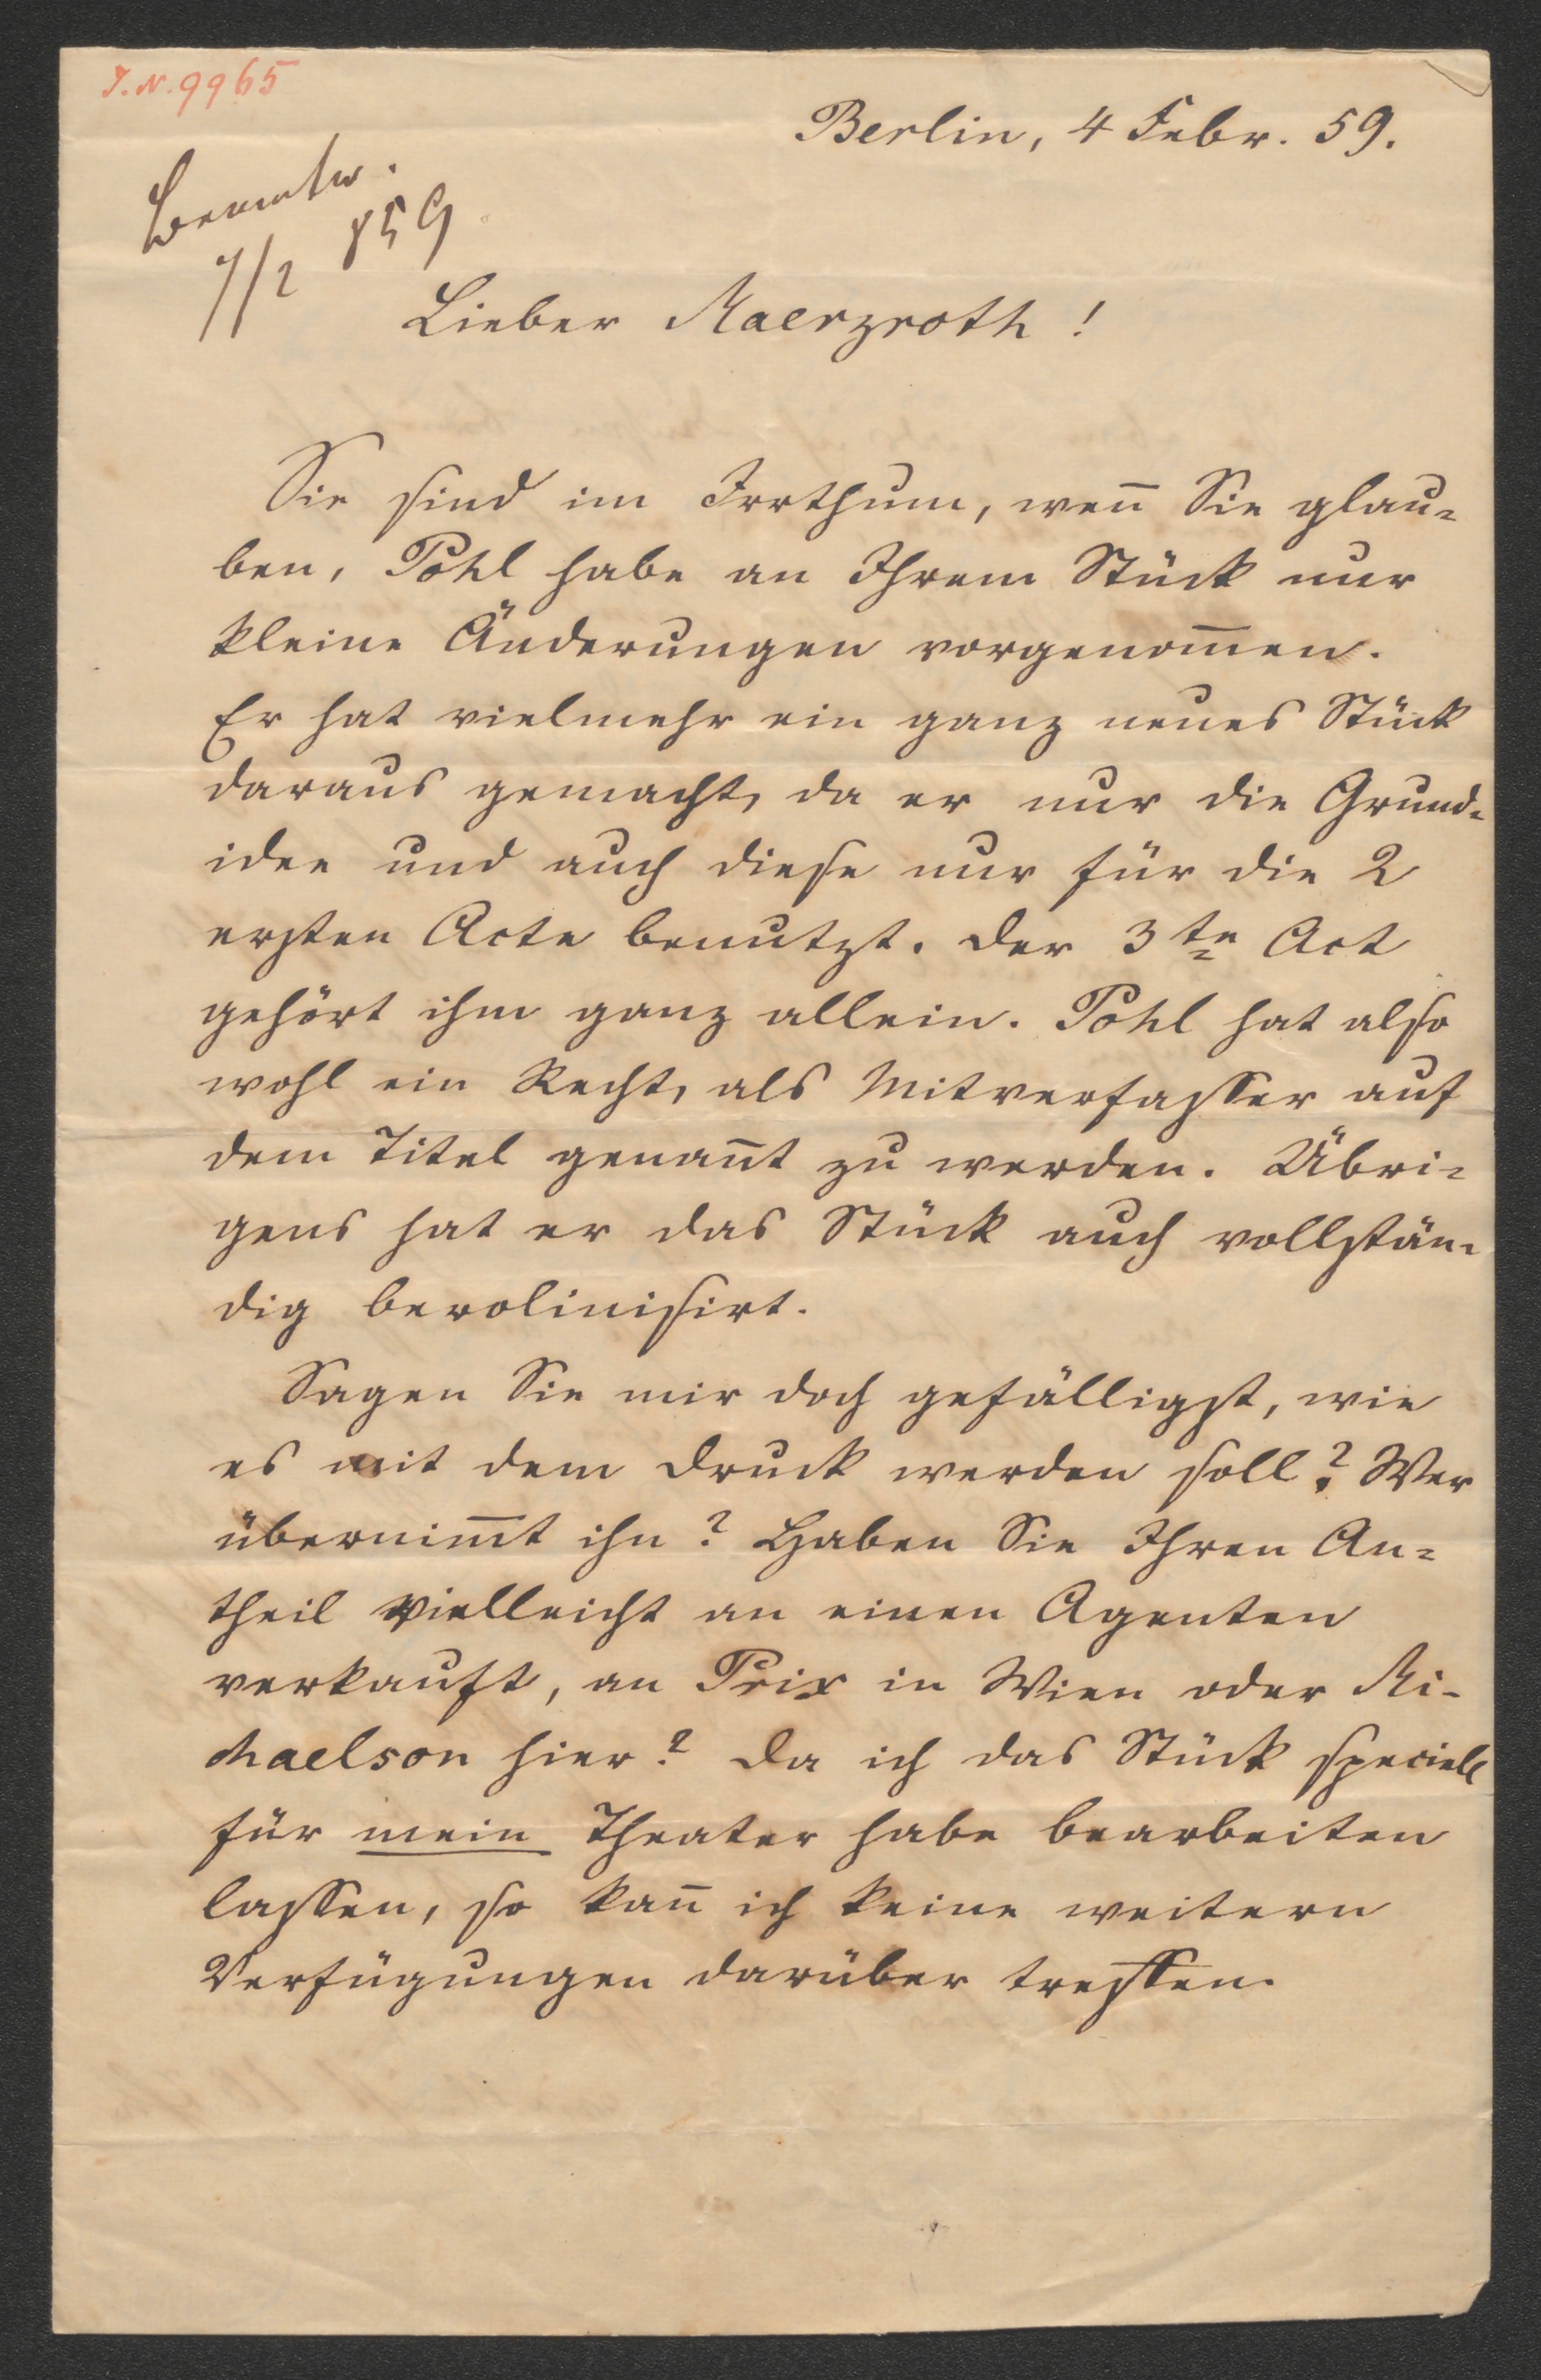 I.N. 9965
Berlin, 4 Febr. 59.
Beantw.
7/2 859
Lieber Maerzroth!
Sie sind im Irrthum, weñ Sie glau-
ben, Pohl habe an Ihrem Stück nur
kleine Änderungen vorgenom̄en.
Er hat vielmehr ein ganz neues Stück
daraus gemacht, da er nur die Grund-
idee und auch diese nur für die 2
ersten Acte benutzt. Der 3te Act
gehört ihm ganz allein. Pohl hat also
wohl ein Recht, als Mitverfasser auf
dem Titel genañt zu werden. Übri-
gens hat er das Stück auch vollstän-
dig berolinisirt.
Sagen Sie mir doch gefälligst, wie
es mit dem Druck werden soll? Wer
übernim̄t ihn? Haben Sie Ihren An-
theil vielleicht an einen Agenten
verkauft, an Prix in Wien oder Mi-
chaelson hier? Da ich das Stück speciell
für mein Theater habe bearbeiten
lassen, so kañ ich keine weitern
Verfügungen darüber treffen.